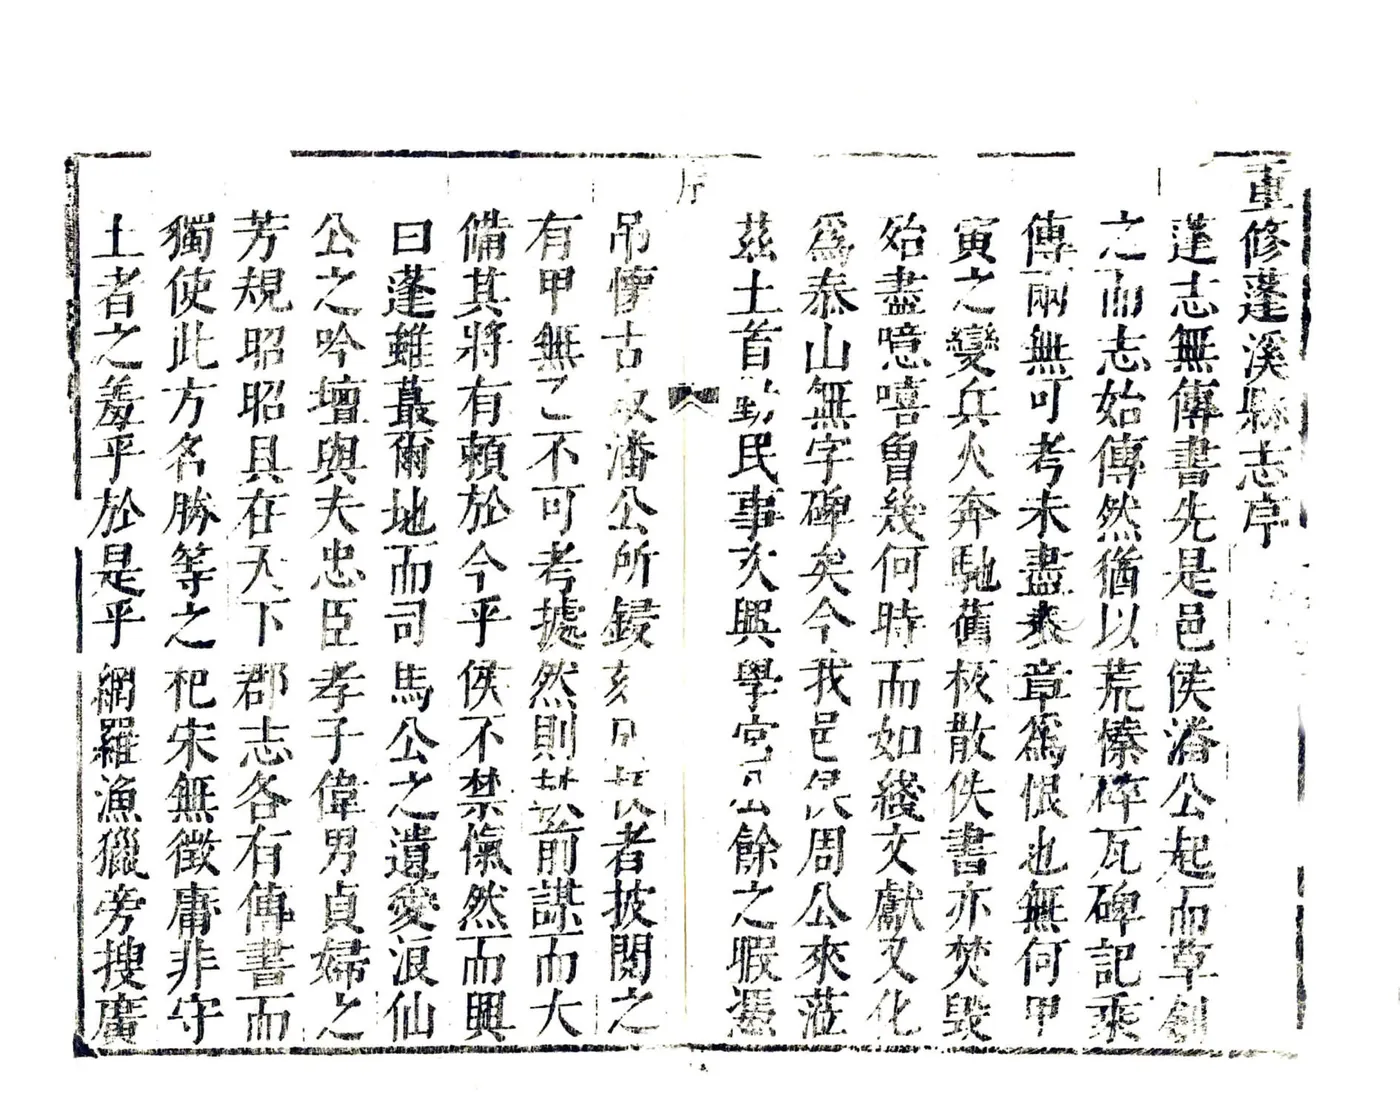 重修蓬溪縣志序
蓬志無傳書先是邑侯潘公起而草創
之而志始傳然猶以荒榛碎瓦碑記乘
傳兩無可考未盡表章爲恨也無何甲
寅之變兵火奔馳舊板散佚書亦焚毀
殆盡噫嘻曾幾何時而如綫文獻又化
爲泰山無字碑矣今我邑侯周公來蒞
茲土首勤民事次興學宮公餘之暇憑
序
吊懷古取潘公所鋟刻
者披閱之
有甲無乙不可考據然則
前謀而大
備其將有賴於今乎侯不禁愾然而興
曰蓬雖蕞爾地而司馬公之遺愛浪仙
公之吟壇與夫忠臣孝子偉男貞婦之
芳規昭昭具在天下郡志各有傳書而
獨使此方名勝等之杞宋無徵庸非守
土者之羞乎於是乎網羅漁獵旁搜廣